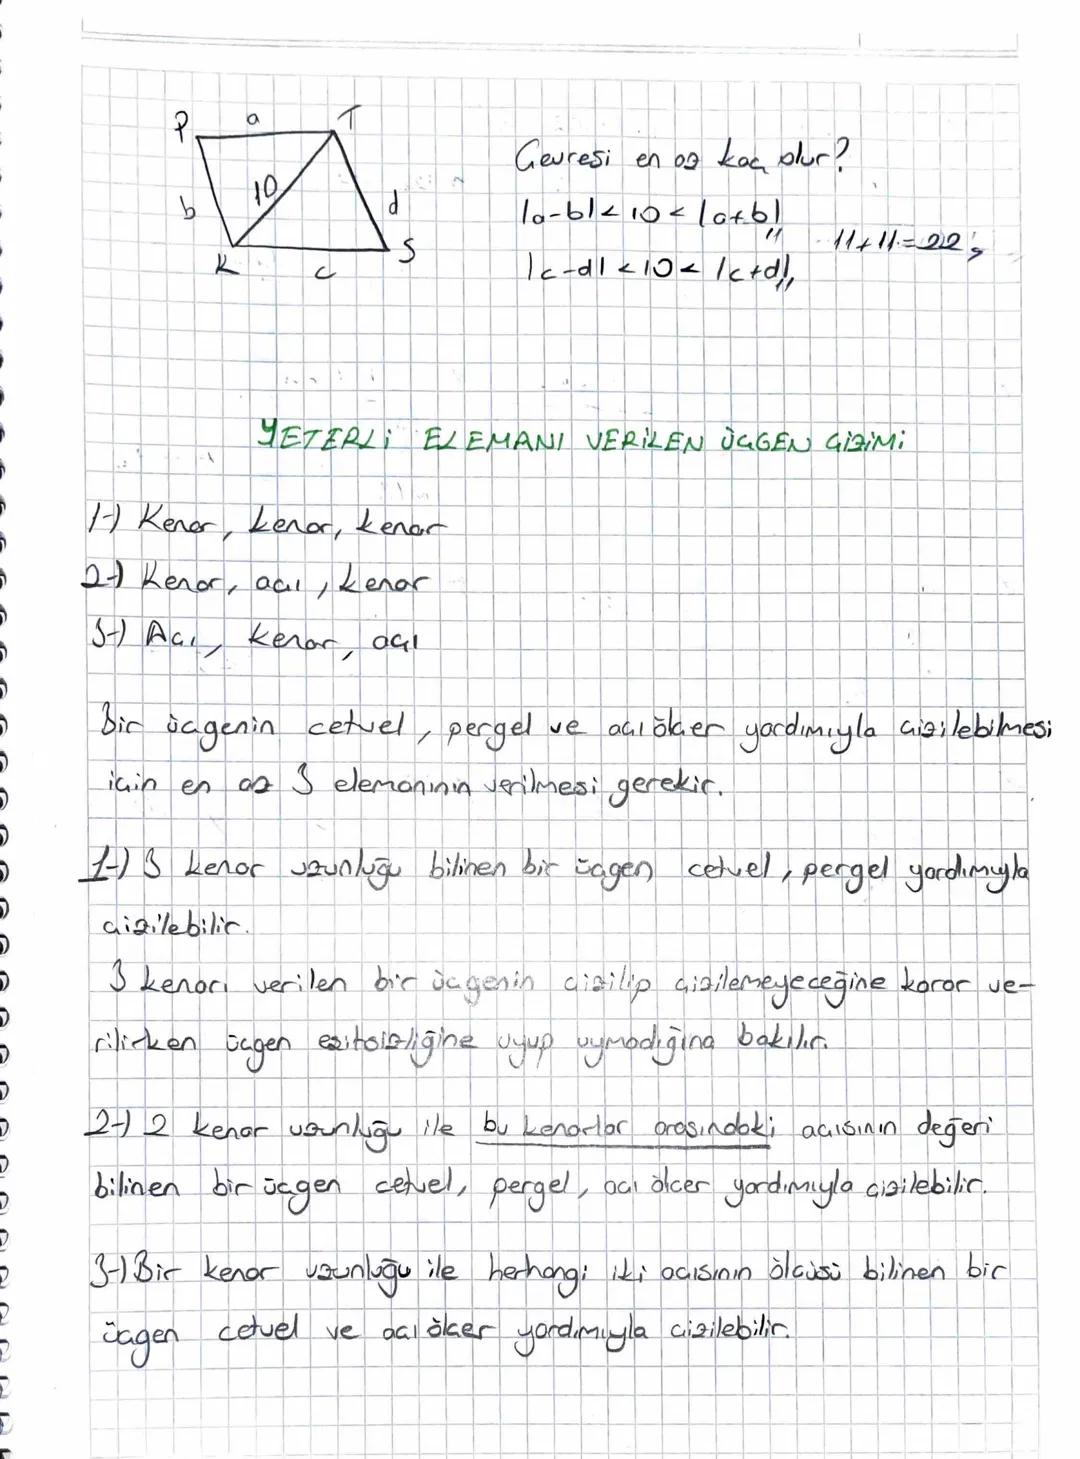 P a T
b 10 d
K c S
Çevresi en az kaç olur?
|a-b| < 10 < |a+b|
11
11+11=22
|c-d| < 10 < |c+d|
11
YETERLİ ELEMANI VERİLEN ÜÇGEN ÇİZİMİ
1-) Kenar, kenar, kenar
2-) Kenar, açı, kenar
3-) Açı, kenar, açı
Bir üçgenin cetvel, pergel ve açı ölçer yardımıyla çizilebilmesi
için en az 3 elemanının verilmesi gerekir.
1-) 3 kenar uzunluğu bilinen bir üçgen cetvel, pergel yardımıyla
çizilebilir.
3 kenarı verilen bir üçgenin çizilip çizilemeyeceğine karar ve-
rilirken üçgen eşitsizliğine uyup uymadığına bakılır.
2-) 2 kenar uzunluğu ile bu kenarlar arasındaki açısının değeri
bilinen bir üçgen cetvel, pergel, açı ölçer yardımıyla çizilebilir.
3-) Bir kenar uzunluğu ile herhangi iki açısının ölçüsü bilinen bir
üçgen cetvel ve açı ölçer yardımıyla çizilebilir.